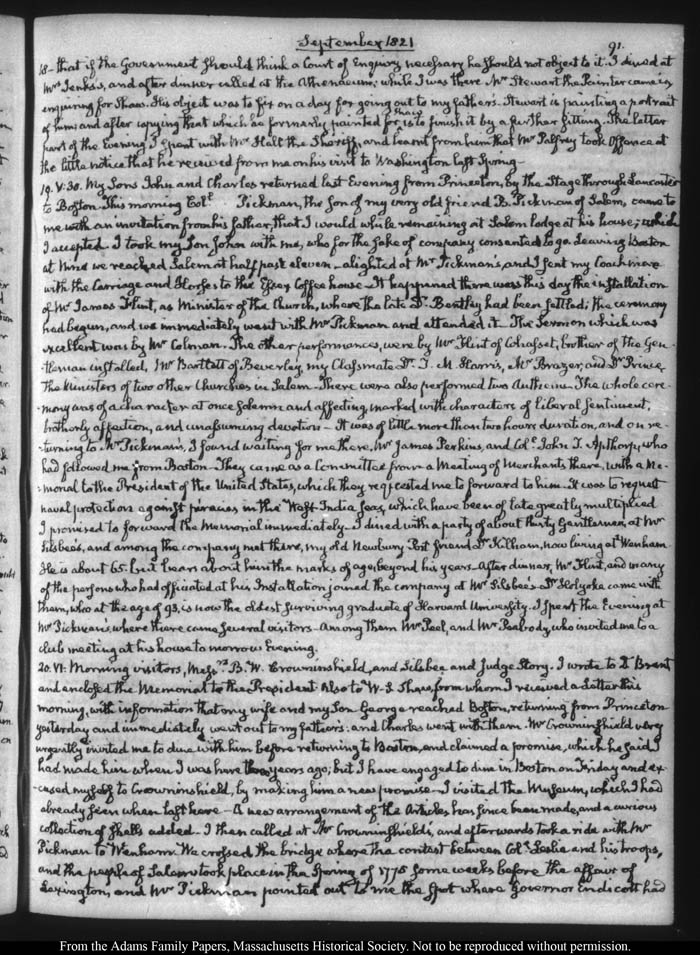 September 1821
91.
18 - that if the Government should think a Court of Enquiry necessary he should not object to it. I dined at
Mrs Jenks's, and after dinner called at the Athenaeum; while I was there Mr Stewart the Painter came in
enquiring for Shaw. His object was to fix on a day for going out to my father's. Stewart is painting a portrait
of him; and after copying that which he formerly painted for Shaw is to finish it by a further sitting. The latter
part of the Evening I spent with Mr Hall the Sheriff, and learnt from him that Mr Palfrey took Offence at
the little notice that he received from me on his visit to Washington last Spring.
19. V:30. My Sons John and Charles returned last Evening from Princeton, by the Stage through Lancaster
to Boston. This morning Col: Pickman, the Son of my very old friend B. Pickman of Salem, came to
me with an invitation from his father, that I would while remaining at Salem lodge at his house; which
I accepted. I took my Son John with me, who for the sake of company consented to go. Leaving Boston
at Nine we reached Salem at half past eleven - alighted at Mr Pickman's and I sent my Coachman
with the Carriage and Horses to the Essex Coffee house. It happened there was this day the installation
of Mr James Flint, as Minister of the Church, where the late Dr Bentley had been settled; the ceremony
had begun, and we immediately went with Mr Pickman and attended it. The Sermon which was
excellent was by Mr Colman. The other performances, were by Mr Flint of Cohasset, brother of the Gen-
tleman installed, Mr Bartlett of Beverley, my Classmate Dr T. M. Harris, Mr Brazer, and Dr Prince
the Ministers of two other Churches in Salem. There were also performed two Anthems. The whole cere-
mony was of a character at once solemn and affecting, marked with characters of liberal sentiment,
brotherly affection, and unassuming devotion - It was of little more than two hours duration, and on re-
turning to Mr Pickman's, I found waiting for me there, Mr James Perkins, and Col: John T. Apthorp, who
had followed me from Boston - They came as a Committee from a Meeting of Merchants there, with a Me-
morial to the President of the United States, which they requested me to forward to him. It was to request
naval protection against piracies in the West India Seas, which have been of late greatly multiplied
I promised to forward the Memorial immediately. I dined with a party of about thirty Gentlemen, at Mr
Silsbee's, and among the company met there, my old Newbury Port friend Dr Kilham, now living at Wenham.
He is about 65. but bears about him the marks of age, beyond his years. After dinner, Mr Flint, and many
of the persons who had officiated at his Installation joined the company at Mr Silsbee's. Dr Holyoke came with
them, who at the age of 93, is now the oldest surviving graduate of Harvard University. I spent the Evening at
Mr Pickman's where there came several visitors - Among them Mr Peel, and Mr Peabody, who invited me to a
club meeting at his house to morrow Evening.
20. VI: Morning visitors, Messrs B. W. Crowninshield, and Silsbee and Judge Story. I wrote to D Brent
and enclosed the Memorial to the President. Also to W. S. Shaw, from whom I received a Letter this
morning, with information that my wife and my Son George reached Boston, returning from Princeton
yesterday and immediately went out to my father's: and Charles went with them. Mr Crowninshield very
urgently invited me to dine with him before returning to Boston, and claimed a promise, which he said I
had made him when I was here two years ago; but I have engaged to dine in Boston on Friday and ex-
cused myself to Crowninshield, by making him a new promise - I visited the Museum, which I had
already seen when last here - A new arrangement of the Articles has since been made, and a curious
collection of shells added. I then called at Mr Crowninshield's, and afterwards took a ride with Mr
Pickman to Wenham. We crossed the bridge where the contest between Col: Leslie and his troops,
and the people of Salem took place in the Spring of 1775 some weeks before the affair of
Lexington, and Mr Pickman pointed out to me the spot where Governor Endicott had
From the Adams Family Papers, Massachusetts Historical Society. Not to be reproduced without permission.